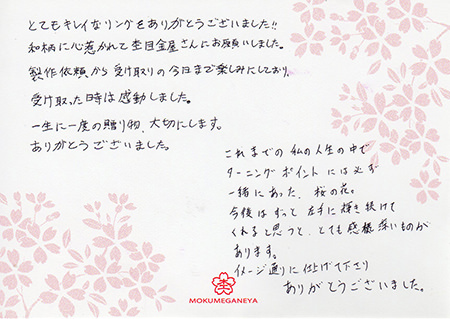 とてもキレイなリングをありがとうございました!!
和柄に心惹かれて杢目金屋さんにお願いしました。
製作依頼から受け取りの今日まで楽しみにしており、
受け取った時は感動しました。
一生に一度の贈り物、大切にします。
ありがとうございました。
これまでの私の人生の中で
ターニングポイントには必ず
一緒にあった、桜の花。
今後はずっと左手に輝き続けて
くれると思うと、とても感慨深いものが
あります。
イメージ通りに仕上げて下さり
ありがとうございました。
MOKUMEGANEYA